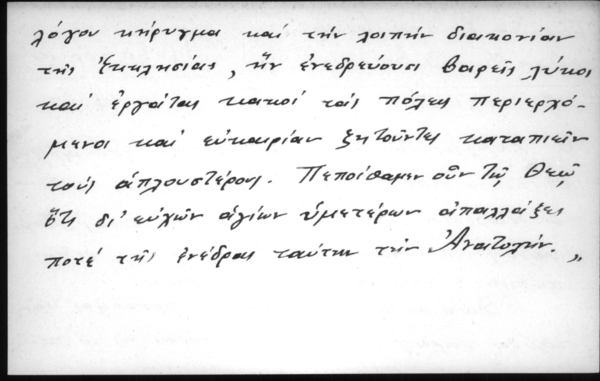 λόγου κήρυγμα καί τήν λοιπήν διακονίαν
τῆς Ἐκκλησίας, ἥν ἐνεδρεύουσι βαρεῖς λύκοι
καί ἐργάται κακοί τάς πόλεις περιερχό-
μενοι καί εὐκαιρίαν ζητοῦντες καταπιεῖν
τούς ἁπλουστέρους. Πεποίθαμεν οὖν τῷ Θεῷ
ὅτι δι' εὐχῶν ἁγίων ὑμετέρων ἀπαλλάξει
ποτέ τῆς ἐνέδρας ταύτης τήν Ἀνατολήν."